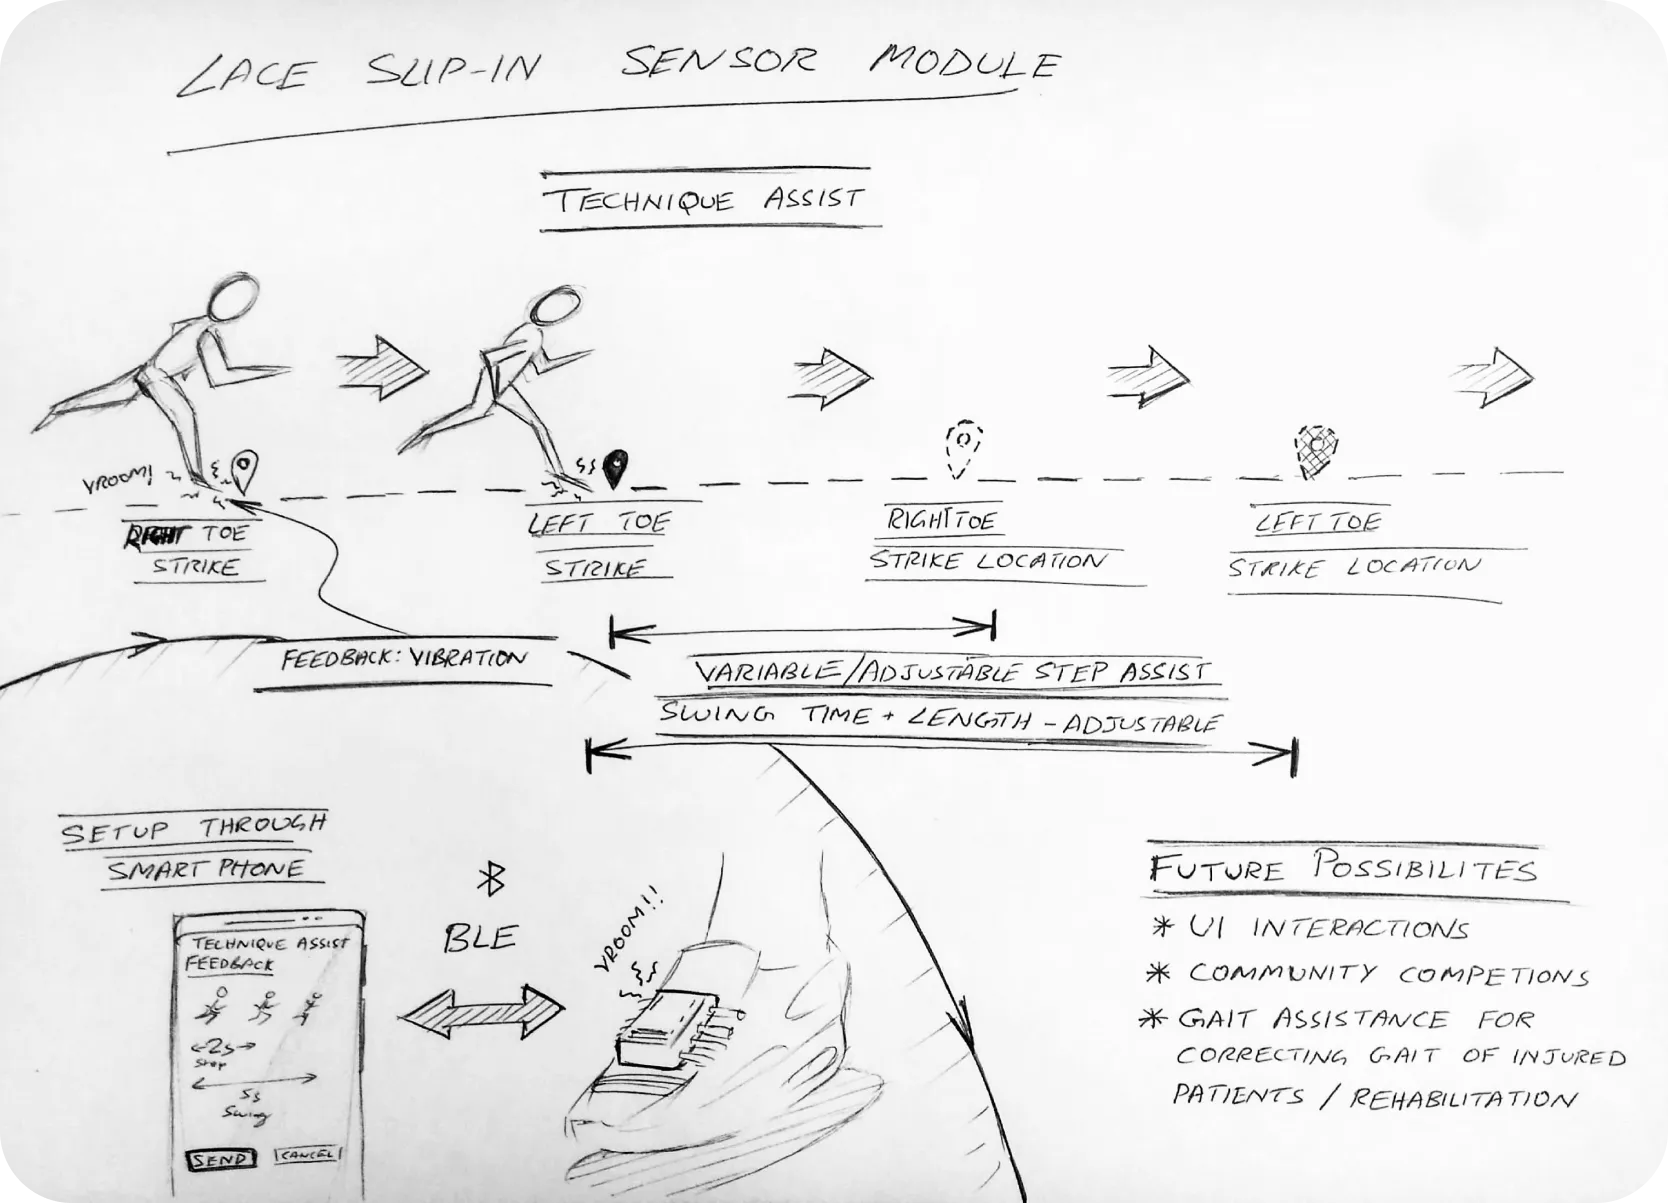 LACE SLIP-IN SENSOR MODULE
TECHNIQUE ASSIST
VROOM!
RIGHT TOE
STRIKE
LEFT TOE
STRIKE
RIGHT TOE
STRIKE LOCATION
LEFT TOE
STRIKE LOCATION
FEEDBACK: VIBRATION
VARIABLE/ADJUSTABLE STEP ASSIST
SWING TIME + LENGTH - ADJUSTABLE
SETUP THROUGH
SMART PHONE
TECHNIQUE ASSIST
FEEDBACK
2s
Step
5s
Swing
SEND CANCEL
BLE
VROOM!!
FUTURE POSSIBILITES
* UI INTERACTIONS
* COMMUNITY COMPETIONS
* GAIT ASSISTANCE FOR
CORRECTING GAIT OF INJURED
PATIENTS / REHABILITATION